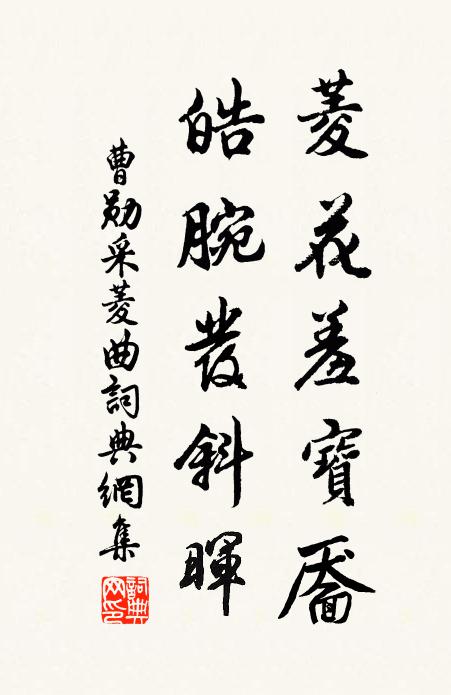 菱花羞寶靨
皓腕發斜暉
曹勛采菱曲詞典網集
詞典網印